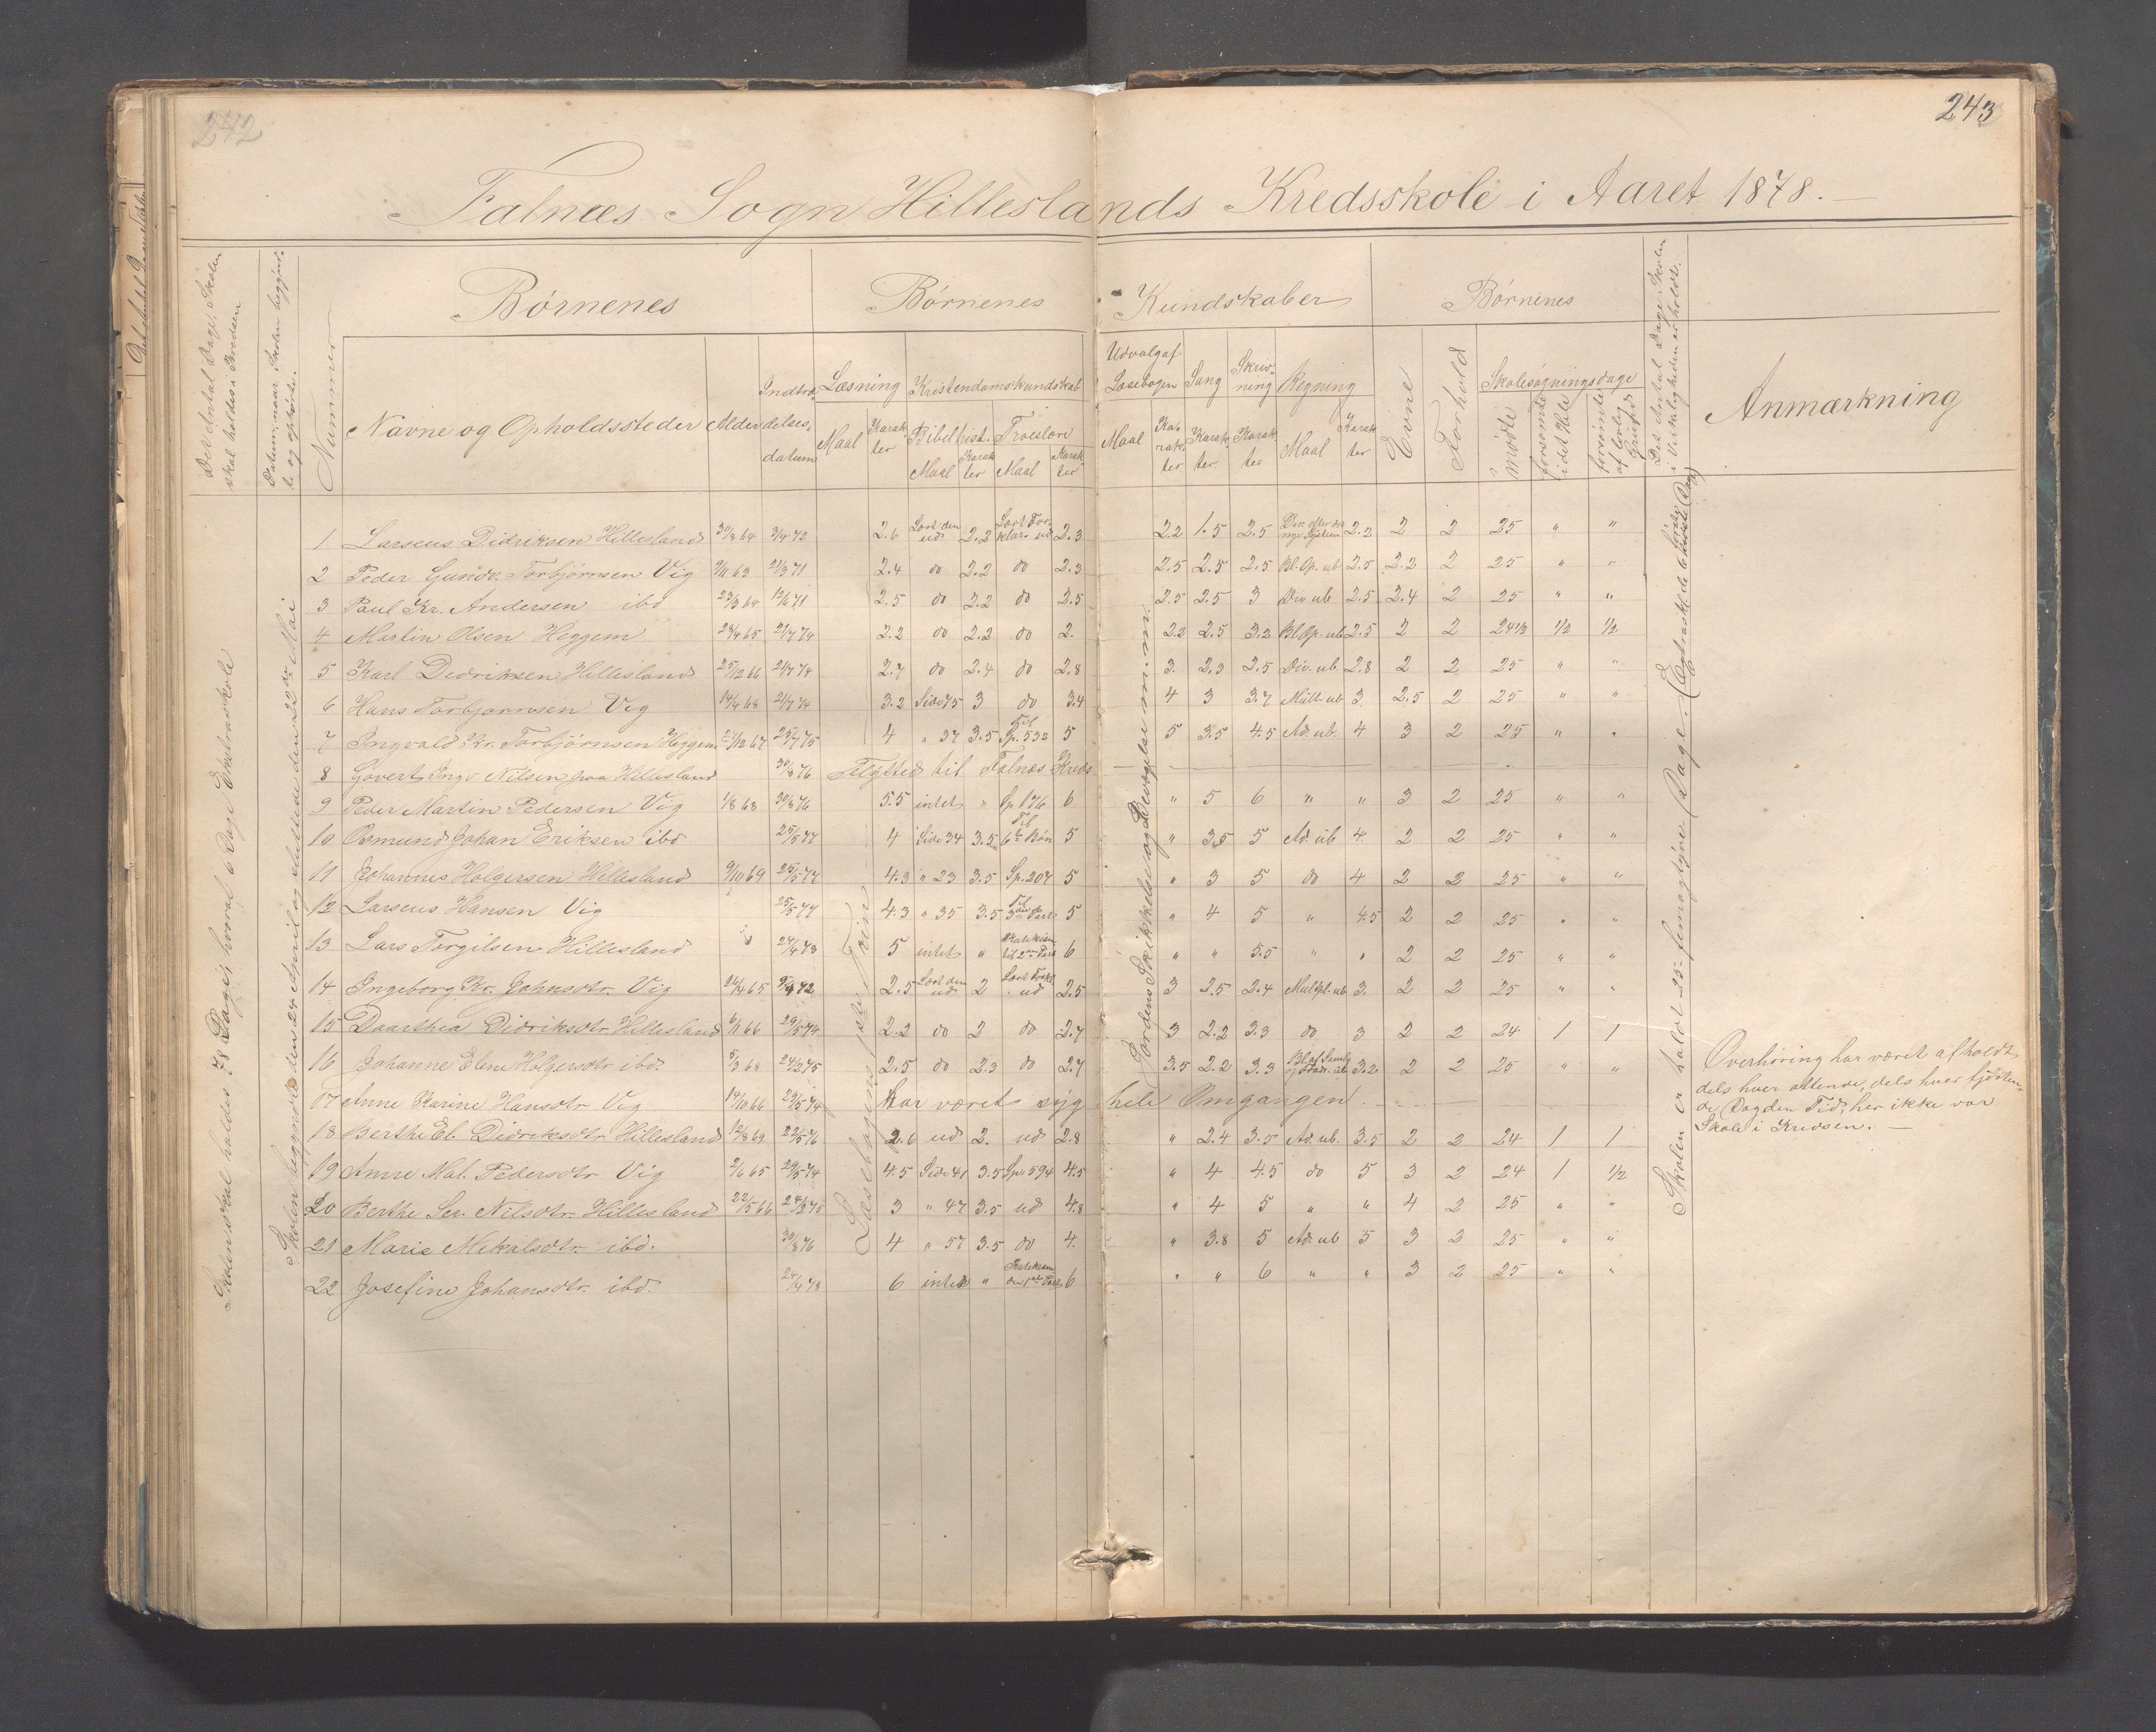 242
243
Falnæs Sogn Hilleslands Kredsskole i Aaret 1878.
Det Antal Dage, Skolen skal holdes i Kredsen
Datum, naar Skolen begyndte og ophørte.
Nummer
Børnenes
Børnenes Kundskaber
Børnenes
Det Antal Dage, Skolen i Virkeligheden er holdt.
Anmærkning
Navne og Opholdssteder
Alder
Indtrædelsesdatum
Læsning
Kristendomskundskab
Udvalg af Læsebogen
Sang
Skrivning
Regning
Evne
Forhold
Skolesøgningsdage
Maal Karakter
Bibelhist. Troeslære
Maal Karakter Maal Karakter
Maal Karakter Karakter Karakter Maal Karakter
mødte
forsømte i det Hele
forsømte af lovlig Grund
Skolen skal holdes 78 Dage, hvoraf 6 Dage Extraskole
Skolen begyndte den 24 April og sluttede den 22de Mai
Læsebogens
Jordens Skikkelse og Bevægelse m. m.
Skolen er holdt 25 - femogtyve Dage.
1 Larseus Didriksen Hillesland 30/8 64 3/4 72 2.6 Læst den ud 2.2 Læst Forklar. ud 2.3 2.2 1.5 2.5 2.2 2 2 25 " "
2 Peder Gunv. Torbjørnsen Vig 9/11 63 21/3 71 2.4 do 2.2 do 2.3 2.5 2.5 2.5 Bl. Op. ub 2.5 2.2 2 25 " "
3 Paul Kr. Andersen ibd 23/3 64 12/6 71 2.5 do 2.2 do 2.5 2.5 2.5 3 Div ub 2.5 2.4 2 25 " "
4 Martin Olsen Heggem 28/4 65 21/7 74 2.2 do 2.2 do 2. 2.2 2.5 3.2 Bl. Op. ub 2.5 2 2 24 1/2 1/2 1/2
5 Karl Dedriksen Hillesland 25/12 66 21/7 74 2.7 do 2.4 do 2.8 3. 2.3 2.5 Div. ub 2.8 2 2 25 " "
6 Hans Torbjørnsen Vig 14/4 68 21/7 74 3.2 Side 75 3 do 3.4 4 3 3.7 Mult. ub 3 2.5 2 25 " "
7 Ingvald Kr. Torbjørnsen Heggem 12 67 23/7 75 4 " 37 3.5 Til Sp. 532 5 5 3.5 4.5 Ad. ub. 4 3 2 25 " "
8 Govert Ingv Nilsen paa Hillesland 30/8 76 Flyttet til Falnæs Kreds
9 Peder Martin Pedersen Vig 1/8 68 30/8 76 5.5 intet " Sp 176 6 " 5 6 " " 3 2 25 " "
10 Osmund Johan Eriksen ibd 25/5 77 4 Side 34 3.5 Til 6te Bøn 5 " 3.5 5 Ad. ub 4. 2 2 25 " "
11 Johannes Holgersen Hillesland 9/10 69 25/5 77 4.3 " 23 3.5 Sp. 207 5 " 3 5 do 4 2 2 25 " "
12 Larseus Hansen Vig 25/5 77 4.3 " 35 3.5 Til 3die Part 5 " 4 5 " 4.5 2 2 25 " "
13 Lars Torgilsen Hillesland 24/4 78 5 intet " Katekism til 2den Part 6 " " 5.5 " " 2 2 25 " "
14 Ingeborg Kr. Johnsdtr. Vig 24/4 65 9/4 72 2.5 Læst den ud 2 Læst Forkl. ud 2.5 3 2.5 2.4 Multpl. ub 3. 2 2 25 " "
15 Daarthea Didriksdtr Hillesland 6/1 66 29/5 74 2.2 do 2 do 2.7 3 2.2 3.3 do 3 2 2 24 1 1
16 Johanne Elene Holgersdtr ibd. 5/3 68 24/2 75 2.5 do 2.3 do 2.7 3.5 2.2 3.3 3.2 2 2 25 " "
17 Anne Karine Hansdtr Vig 14/10 66 29/5 74 har været syg hele Omgangen
18 Berthe El. Didreksdtr Hillesland 12/8 64 22/5 76 2.6 ud 2. ud 2.8 " 2.4 3.5 Ad. ub. 3.5 2 2 24 1 1
19 Anne Mal. Pedersdtr Vig 2/6 65 29/5 74 4.5 Side 41 3.5 Sp. 594 4.5 " 4 4.5 do 5 3 2 24 1 1/2
20 Berthe Ser. Nilsdtr. Hillesland 22/5 66 24/2 75 3 " 47 3.5 ud 4.8 " 4 5 " " 4 2 25 " "
21 Marie Mikalsdtr. ibd. 30/8 76 4 " 57 3.5 do 4. " 3.8 5 Ad. ub 5 3 2 25 " "
22 Josefine Johansdtr. ibd. 24/4 78 6 intet " Katekism den 1ste Part 6 " " 6 " " 3 2 25 " "
Overhøring har været afholdt
dels hver ottende, dels hver fjorten-
de Dag den Tid, her ikke var
Skole i Kredsen. —